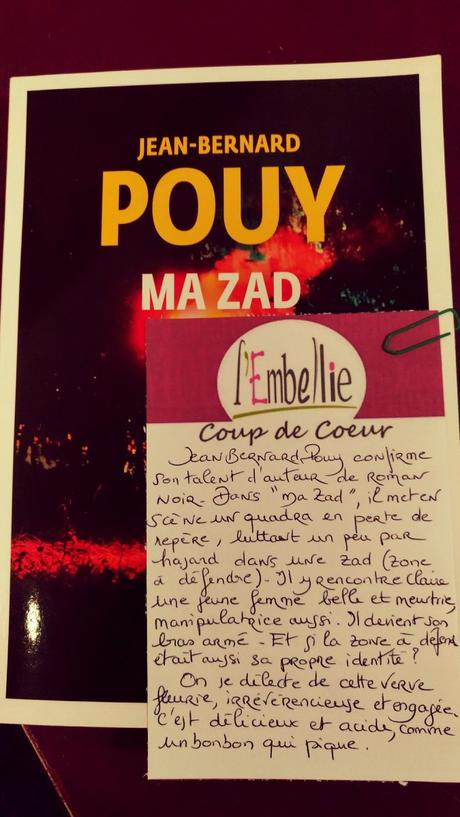 JEAN-BERNARD
POUY
MA ZAD
l'Embellie
Coup de Coeur
Jean Bernard Pouy confirme
son talent d'auteur de roman
noir. Dans "Ma Zad", il met en
scène un quadra en perte de
repère, luttant un peu par
hasard dans une zad (zone
à défendre). Il y rencontre Claire
une jeune femme belle et meurtrie,
manipulatrice aussi. Il devient son
bras armé. Et si la zone à défend
était aussi sa propre identité ?
On se délecte de cette verve
fleurie, irrévérencieuse et engagée.
C'est délicieux et acide, comme
un bonbon qui pique.